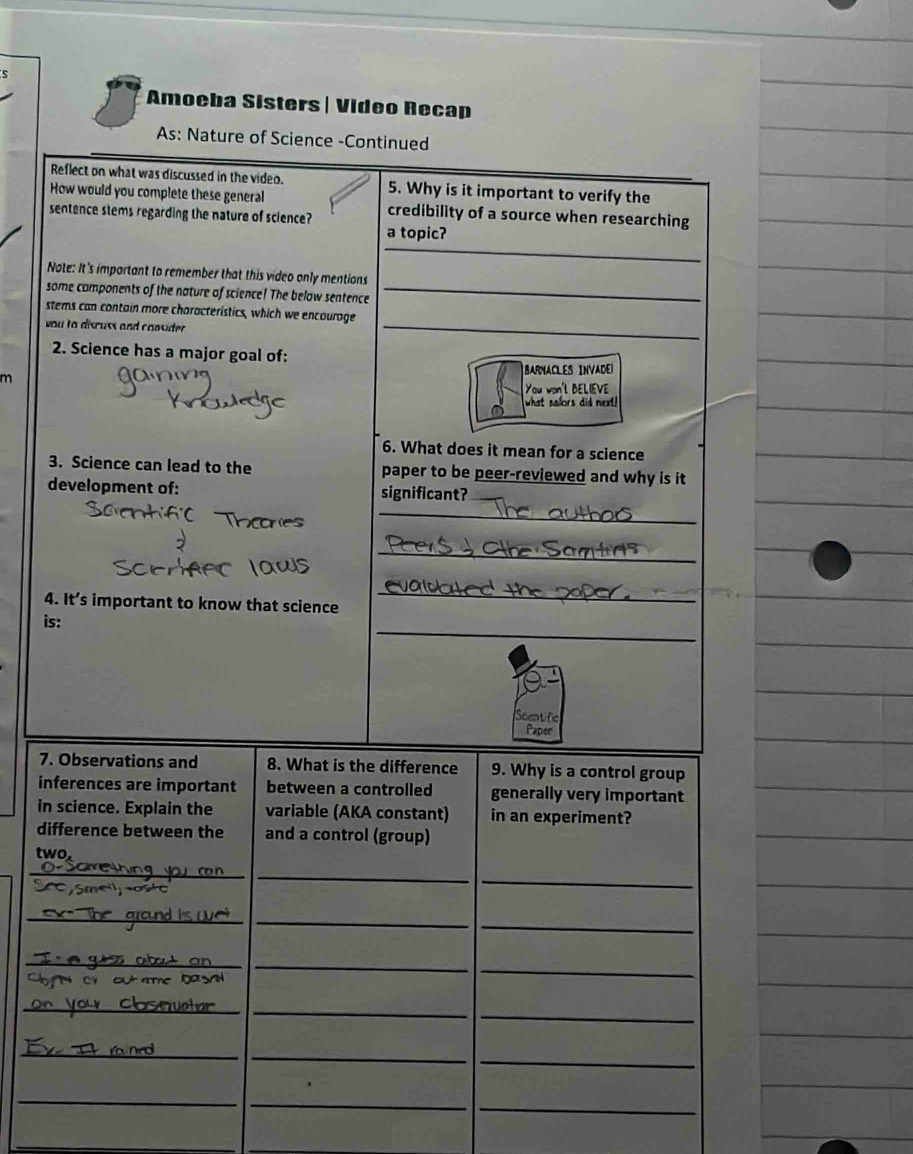 s
Amoeba Sisters | Video Recap
As: Nature of Science -Continued
Reflect on what was discussed in the video.
How would you complete these general
sentence stems regarding the nature of science?
Note: It's important to remember that this video only mentions
some components of the nature of science! The below sentence
stems can contain more characteristics, which we encourage
you to discuss and consider
2. Science has a major goal of:
gaining
Knowledge
m
3. Science can lead to the
development of:
Scientific Theories
&
laws
4. It's important to know that science
is:
5. Why is it important to verify the
credibility of a source when researching
a topic?
BARNACLES INVADE!
You won't BELIEVE
what sailors did next!
6. What does it mean for a science
paper to be peer-reviewed and why is it
significant?
The authors
Peers &
evaluated the paper.
Scientific
Paper
7. Observations and
inferences are important
in science. Explain the
difference between the
two.
O- Something you can
See, smell, taste
ex- The grand is wet
I- a guess about an
or based
on your
Ex- It rained
8. What is the difference
between a controlled
variable (AKA constant)
and a control (group)
9. Why is a control group
generally very important
in an experiment?